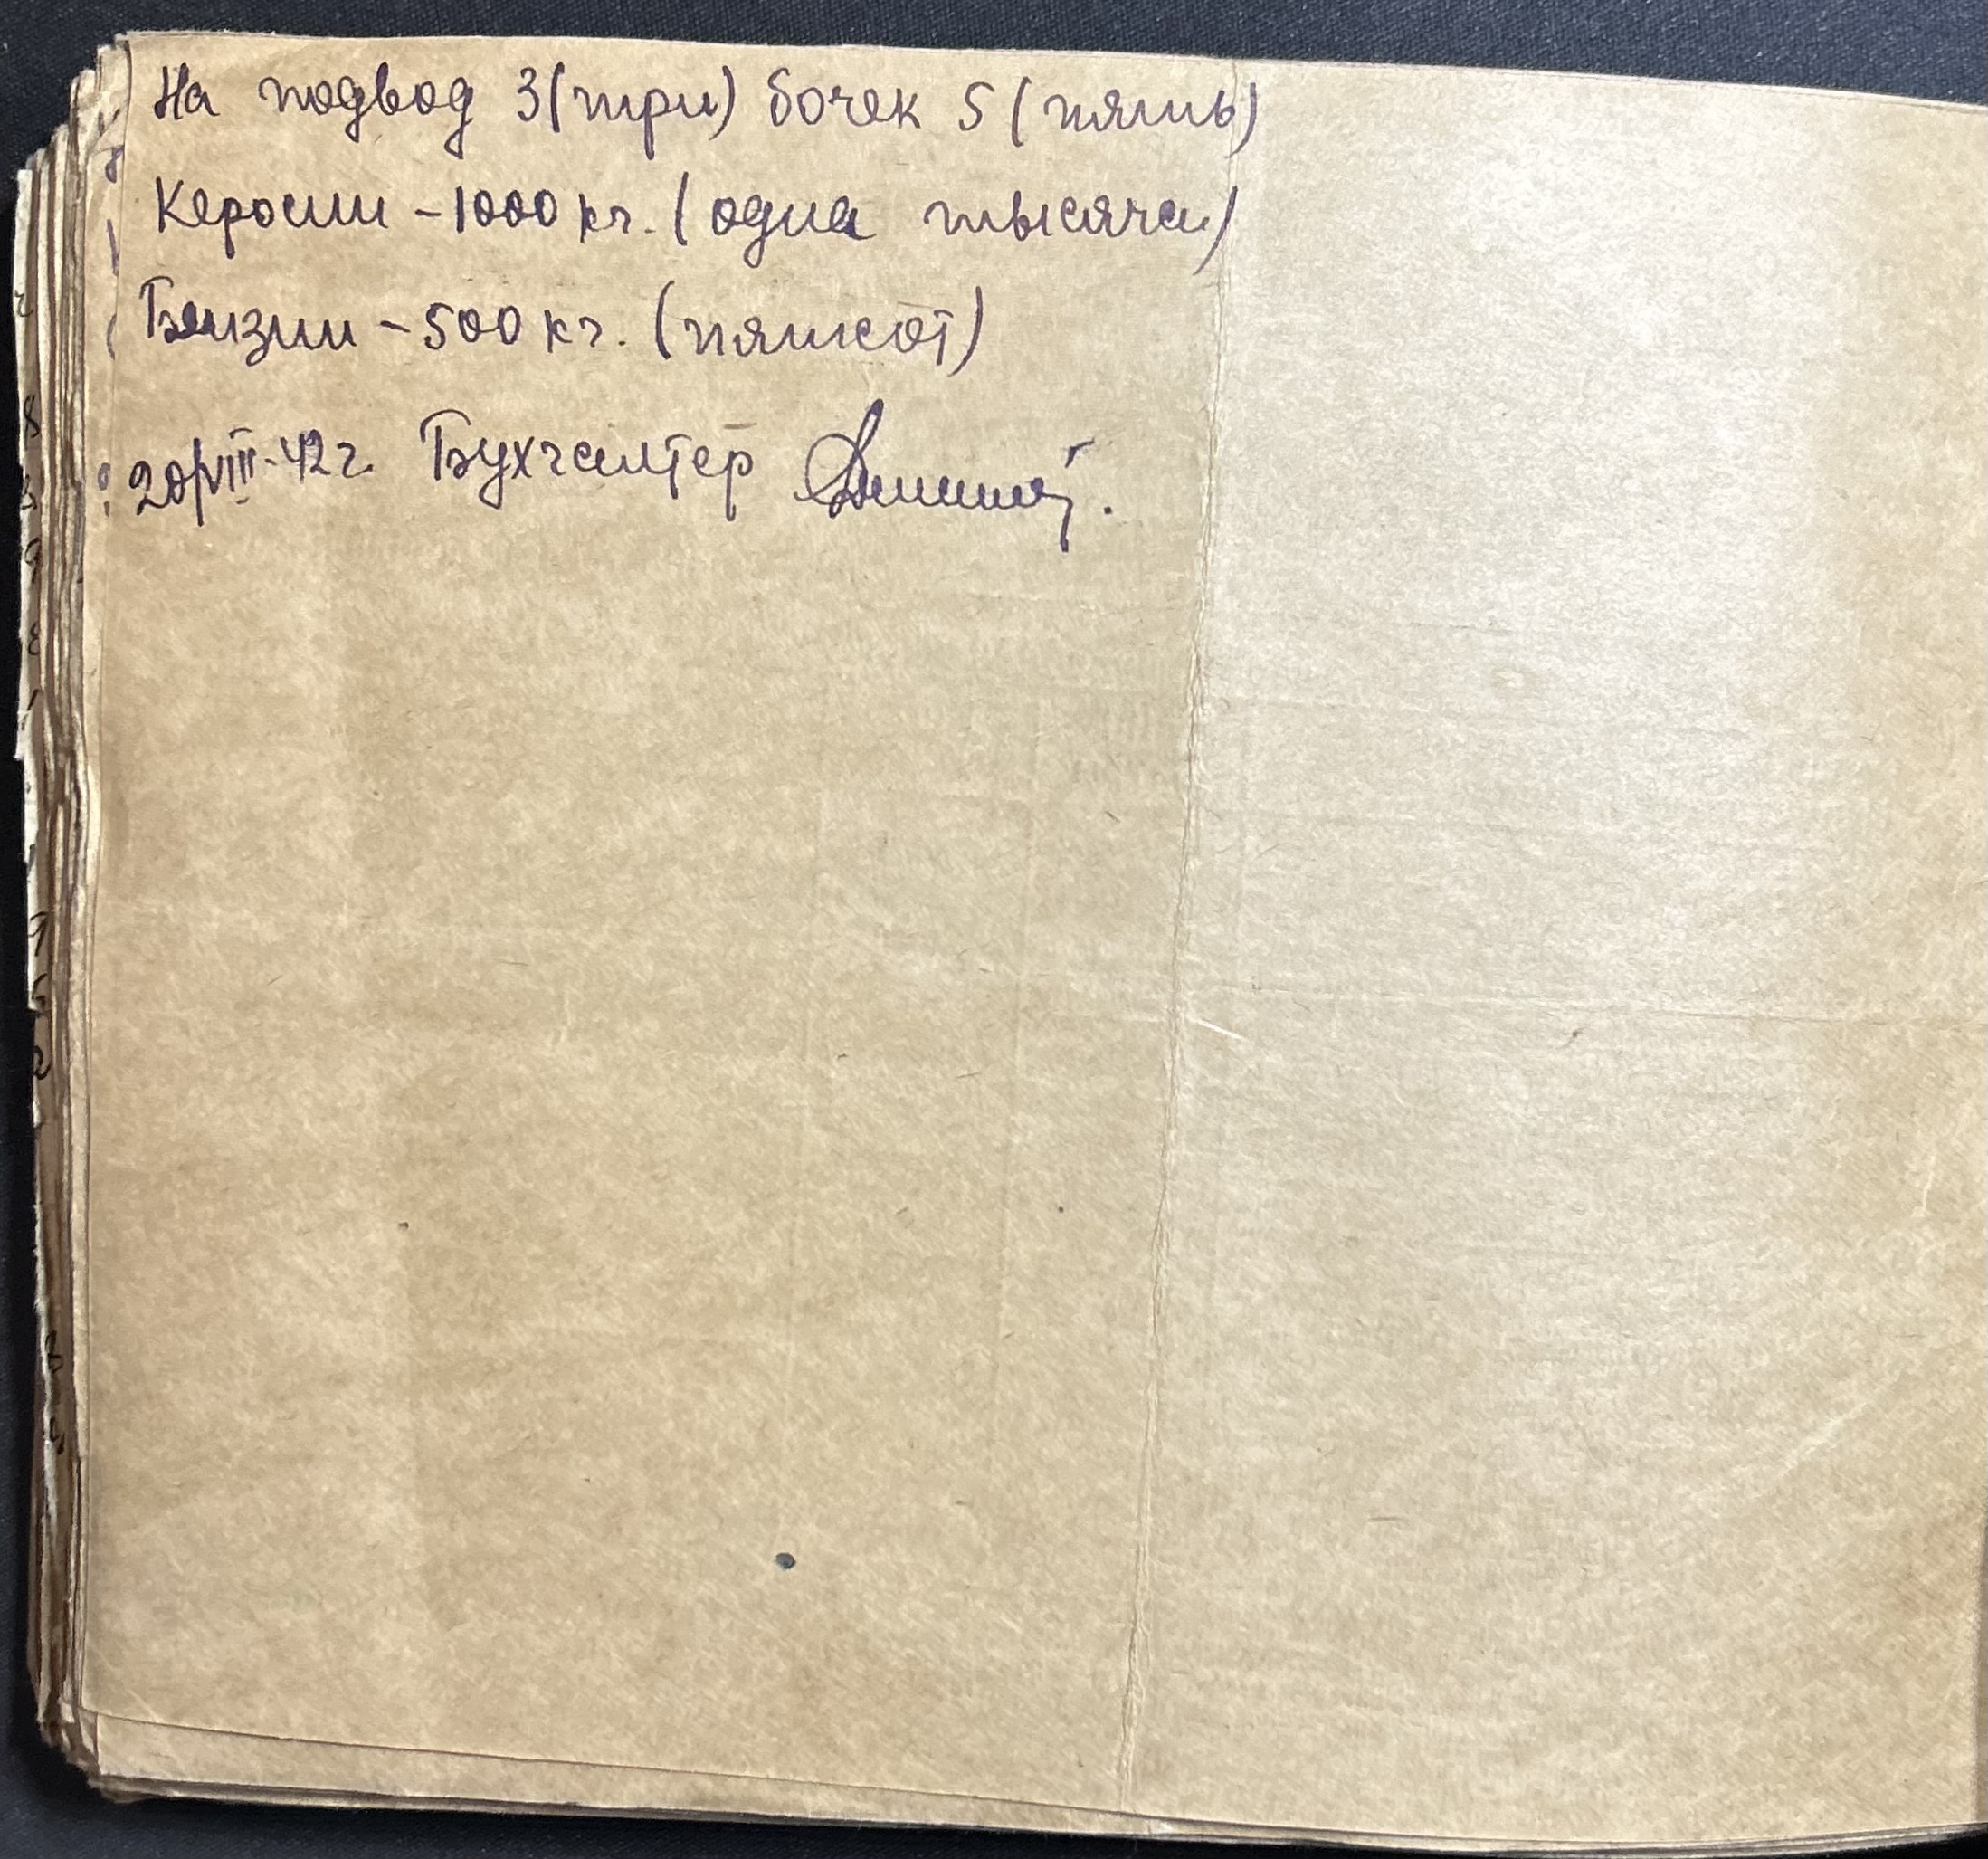 На подвод 3 (три) бочек 5 (пять)
Керосин - 1000 кг. (одна тысяча)
Бензин - 500 кг. (пятсот)
20/VIII-42 г. Бухгалтер